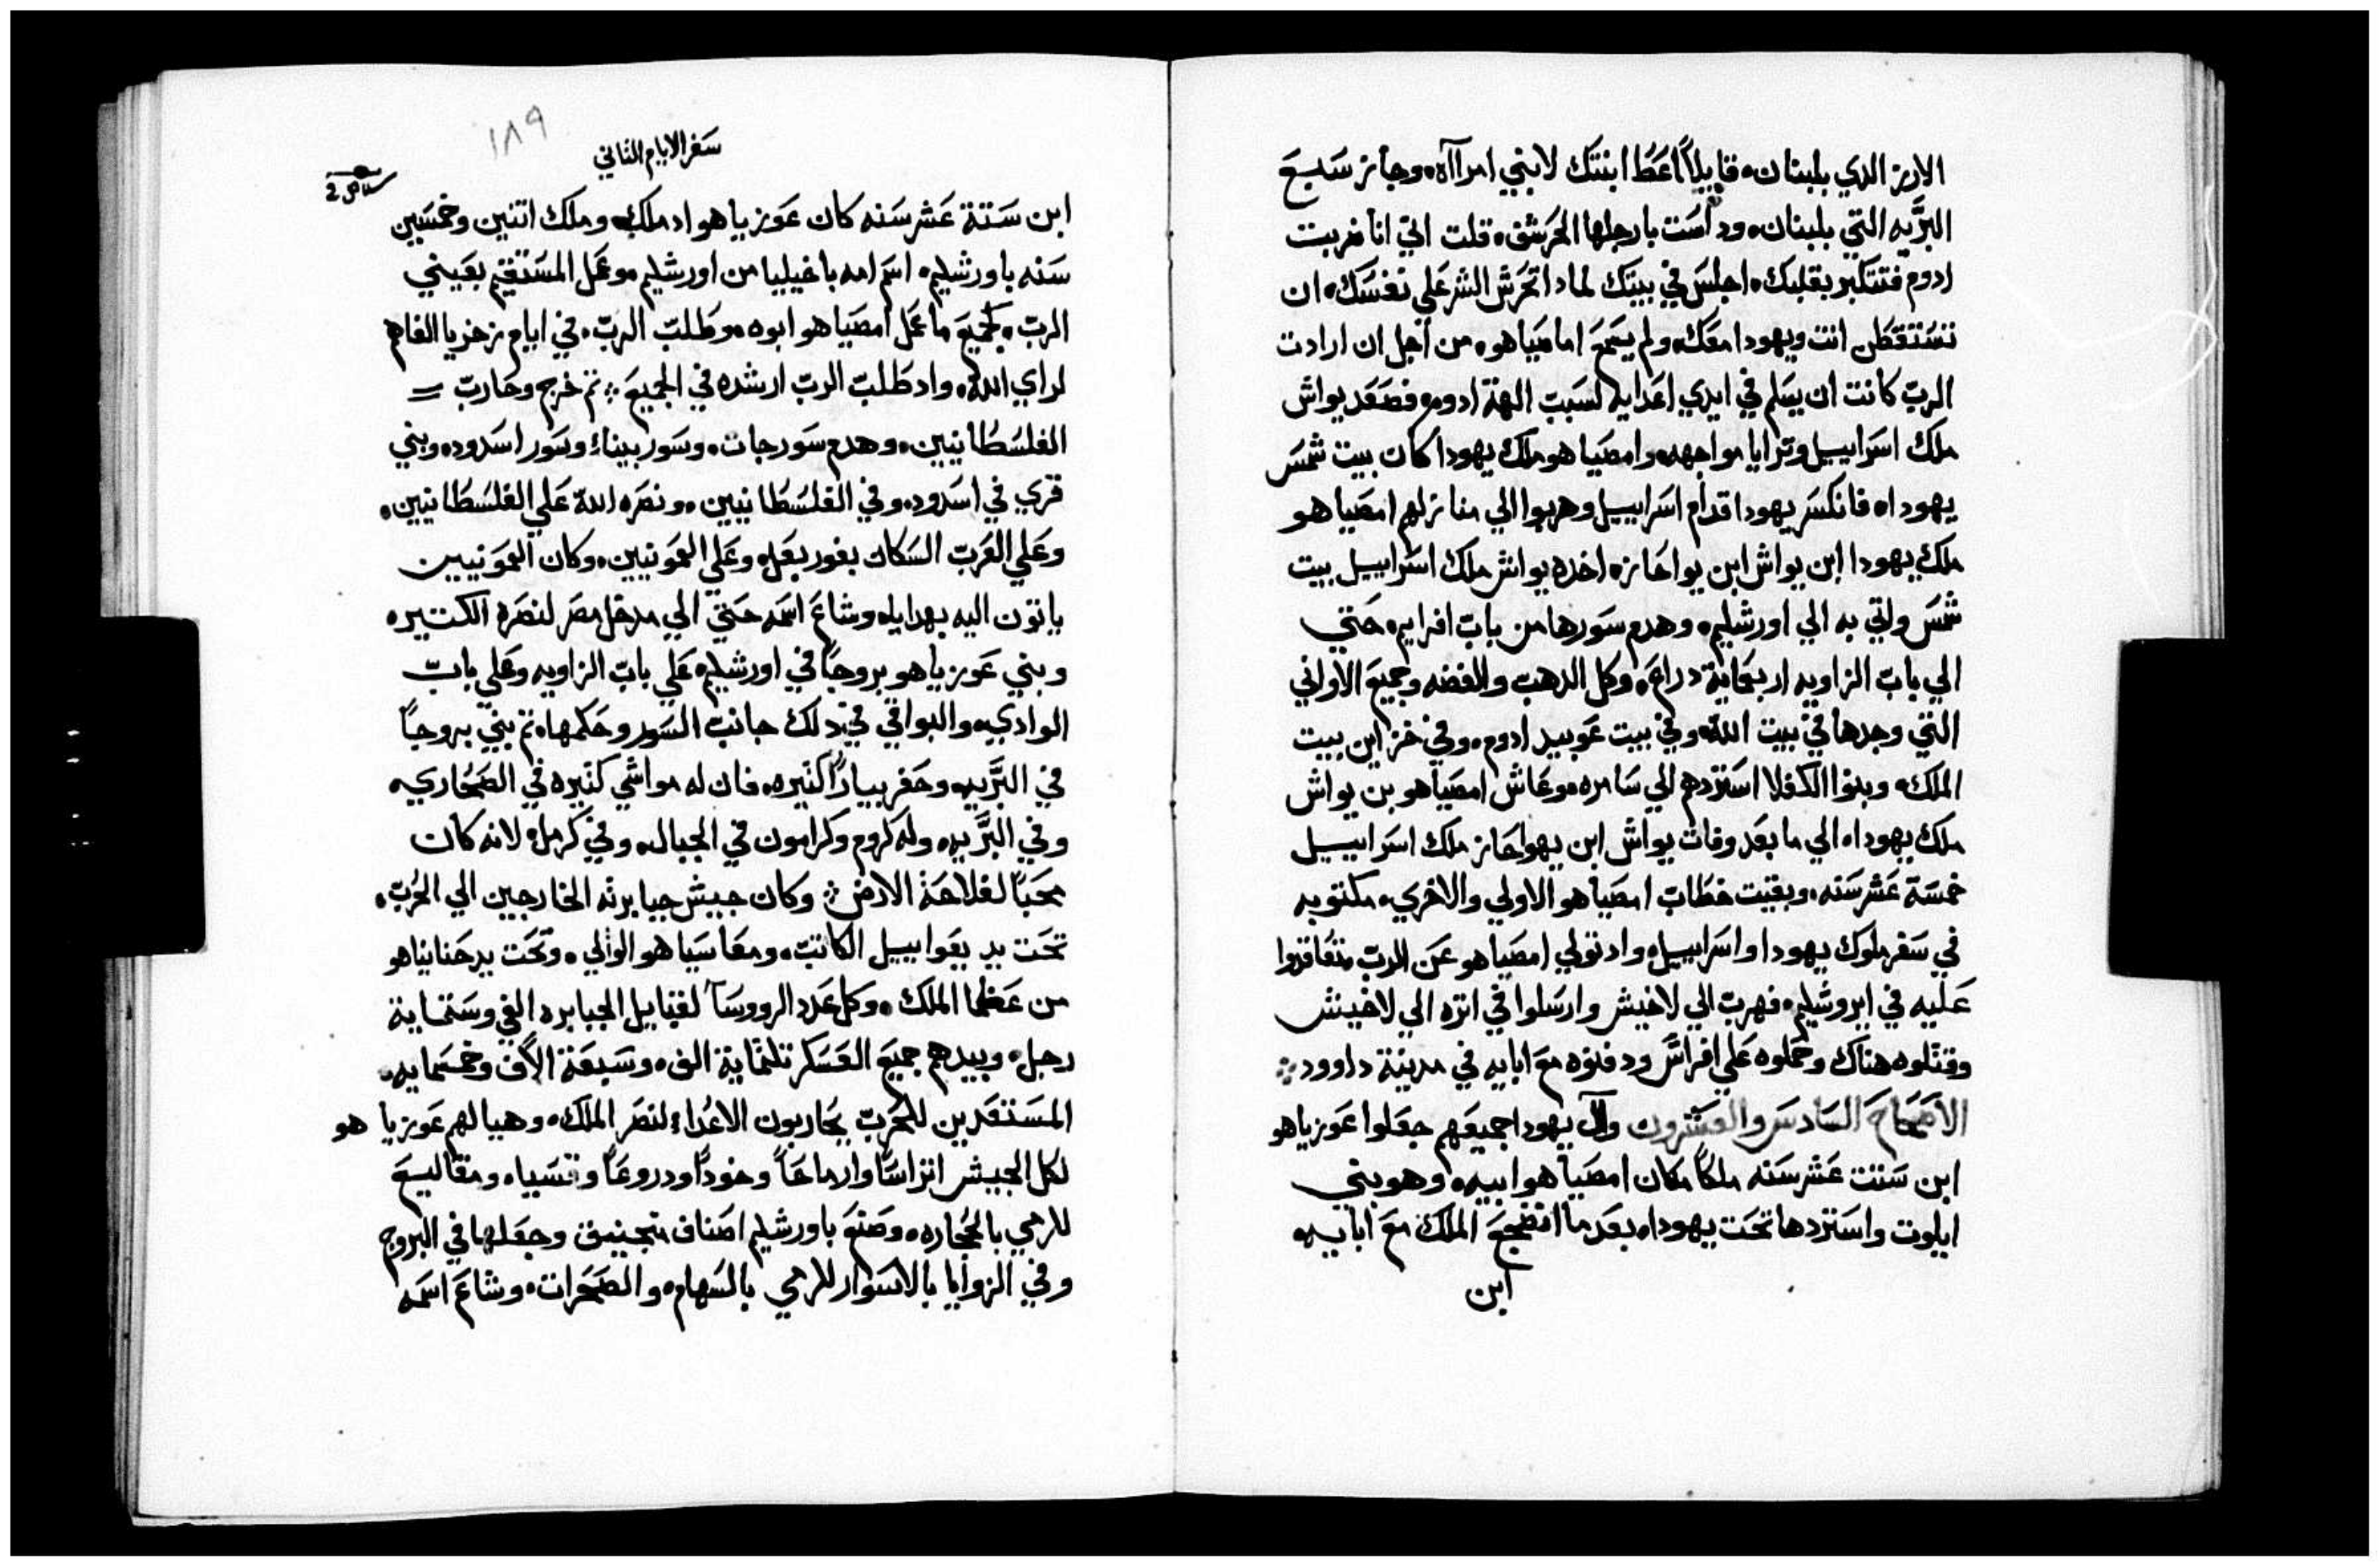 الارز الدي بلبنان، قايلاً اعط ابنتك لابني امراآة، وجاز سبع
البرّيه التي بلبنان، وداست بارجلها الحرشف، قلت اني انا ضربت
ادوم فتتكبر بقلبك، اجلس في بيتك لمادا تحرش الشر علي نفسك، ان
تستقطن انت ويهودا معك، ولم يسمع امامياهو، من اجل ان ارادت
الربّ كانت ان يسلم في ايدي اعدايه لسبب الهة ادوم، فصعد يواش
ملك اسراييل وترايا مواجهه، وامصيا هو ملك يهودا كان بيت شمس
يهوداه فانكسر يهودا قدام اسراييل وهربوا الي منازلهم امصياهو
ملك يهودا ابن يواش ابن يواحاز، اخده يواش ملك اسراييل بيت
شمس واتي به الي اورشليم، وهدم سورها من باب افرايم، حتي
الي باب الزاويه اربعماية دراع، وكل الدهب والفضه وجميع الاواني
التي وجدها في بيت الله، وفي بيت عوبيد ادوم، وفي خزاين بيت
الملك، وبنوا الكفلا استردهم الي سامره، وعاش امصياهو بن يواش
ملك يهوداه الي ما بعد وفات يواش ابن يهواحاز ملك اسراييل
خمسة عشر سنه، وبقيت خطاب امصياهو الاولي والاخري، مكتوبه
في سفر ملوك يهودا واسراييل، واد تولي امصياهو عن الرب تعاقدوا
عليه في ايروشليم، فهرب الي لاخيش وارسلوا في اتره الي لاخيش
وقتلوه هناك وحملوه علي افراس ودفنوه مع ابايه في مدينة داوود
الاصحاح السادس والعشرون وآل يهودا جميعهم جعلوا عوزياهو
ابن ستت عشر سنه ملكاً مكان امصياهو ابيه، وهو بني
ايلوت واستردها تحت يهوداه بعد ما انضجع الملك مع ابايه
ابن
١٨٩
سفر الايام التاني
ابن ستة عشر سنه كان عوزياهو اد ملك، وملك اتنين وخمسين
سنه باورشليم، اسم امه ياخيليا من اورشليم، وعمل المستقيم بعيني
الربّ، كجميع ما عمل امصياهو ابوه، وطلب الربّ، في ايام زخريا الفاهم
لراي الله، واد طلب الرب ارشده في الجميع، تم خرج وحارب
الفلسطانيين، وهدم سور جات، وسور بيناء وسور اسدود، وبني
قري في اسدود، وفي الفلسطانيين، ونصره الله علي الفلسطانيين،
وعلي العرب السكان بغور بعل، وعلي العمونيين، وكان العمونيين
ياتون اليه بهدايا، وشاع اسمه حتي الي مدخل مصر لنصرة الكتيره
وبني عوزياهو بروجاً في اورشليم، علي باب الزاويه وعلي باب
الوادي، والبواقي في دلك جانب السور وحكمها، تم بني بروجاً
في البرّيه، وحفر بياراً كتيره، فان له مواشي كتيره في الصحاري
وفي البرّيه، وله كروم وكرامون في الجبال، وفي كرمل، لانه كان
محباً لفلاحة الارض وكان جيش جبابرته الخارجين الي الحرب،
تحت يد يعواييل الكاتب، ومعاسيا هو الوالي، وتحت يد حنانياهو
من عظما الملك، وكل عدد الرووسآ لقبايل الجبابره الفي وستماية
رجل، وبيدهم جميع العسكر تلتماية الف، وسبعة الآف وخمسمايه
المستعدين للحرب يحاربون الاعداء لنصر الملك، وهيا لهم عوزيا هو
لكل الجيش اتراساً وارماحاً وخوداً ودروعاً وقسياه ومقاليع
للرمي بالحجاره، وصنع باورشليم اصناف منجنيق وجعلها في البروج
وفي الزوايا بالاسوار للرمي بالسهام، والصخرات، وشاع اسمه